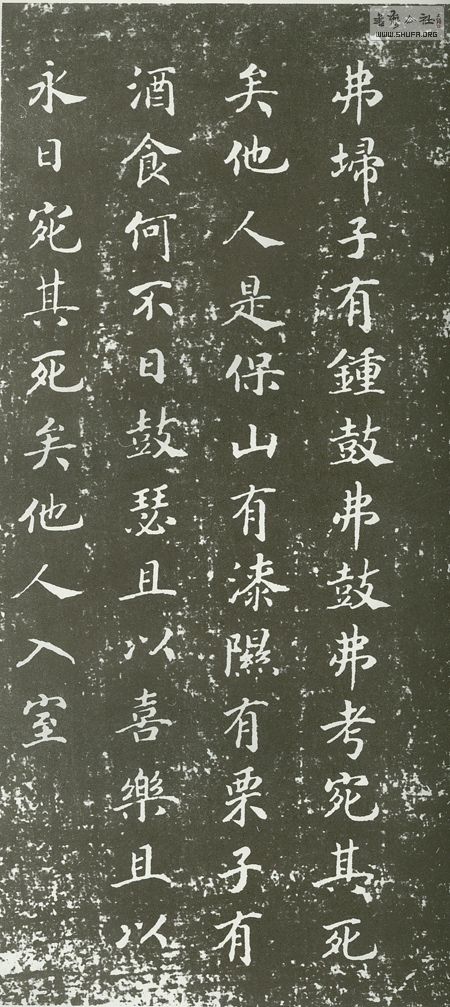 弗埽子有鍾鼓弗鼓弗考宛其死
矣他人是保山有漆隰有栗子有
酒食何不日鼓瑟且以喜樂且以
永日宛其死矣他人入室
WWW.SHUFA.ORG